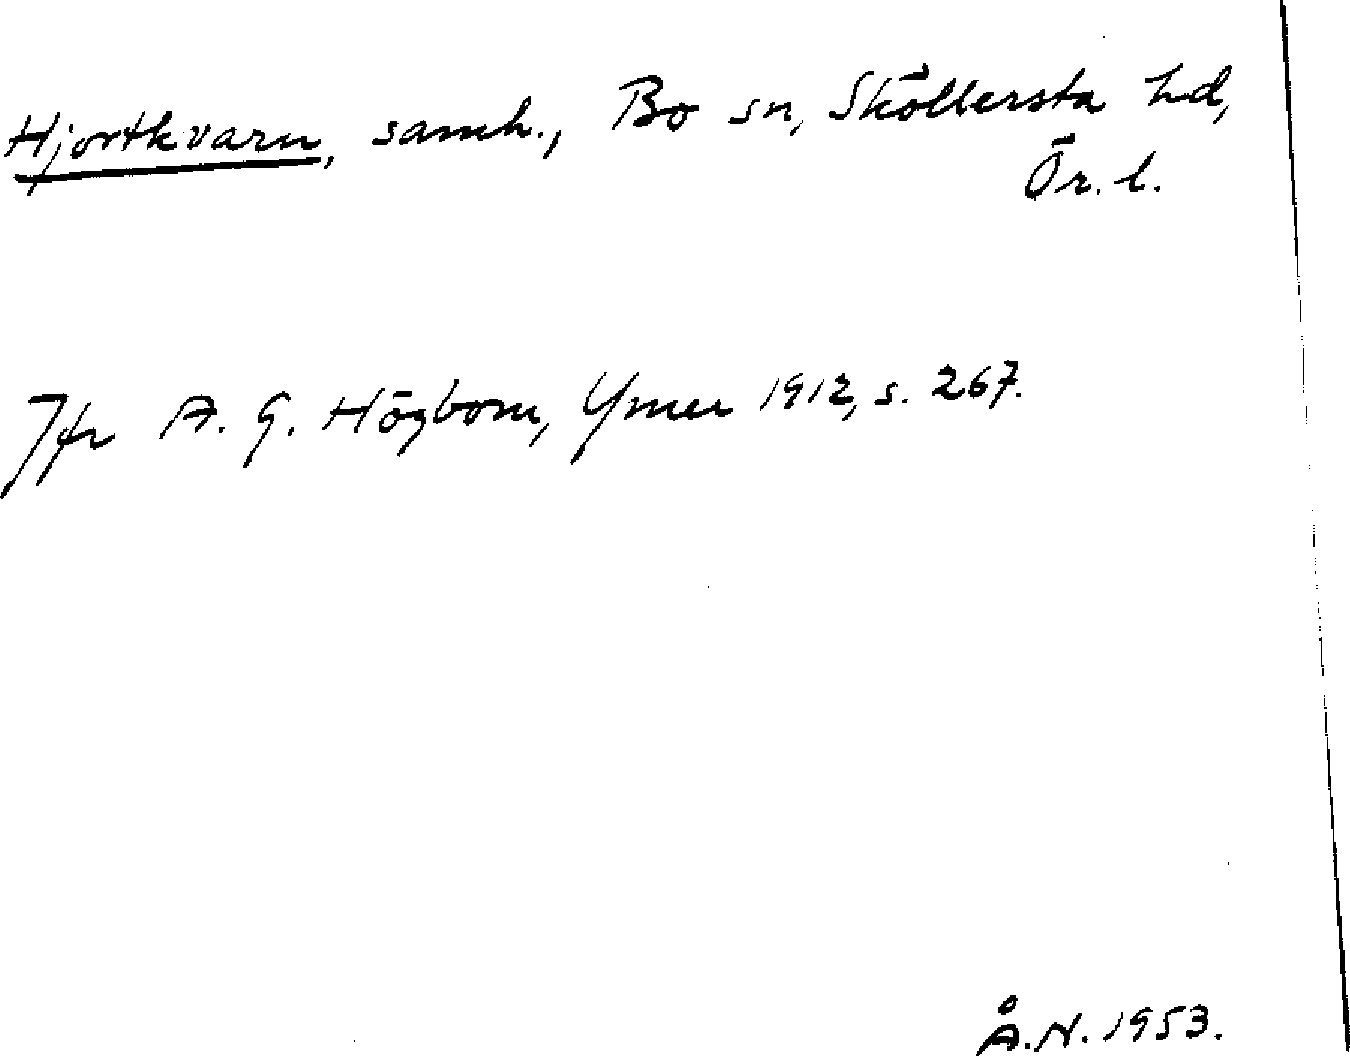 Hjortkvarn, samh., Bo sn, Sköllersta hd,
Ör. l.
Jfr A. G. Högbom, Ymer 1912, s. 267.
Å.N. 1953.